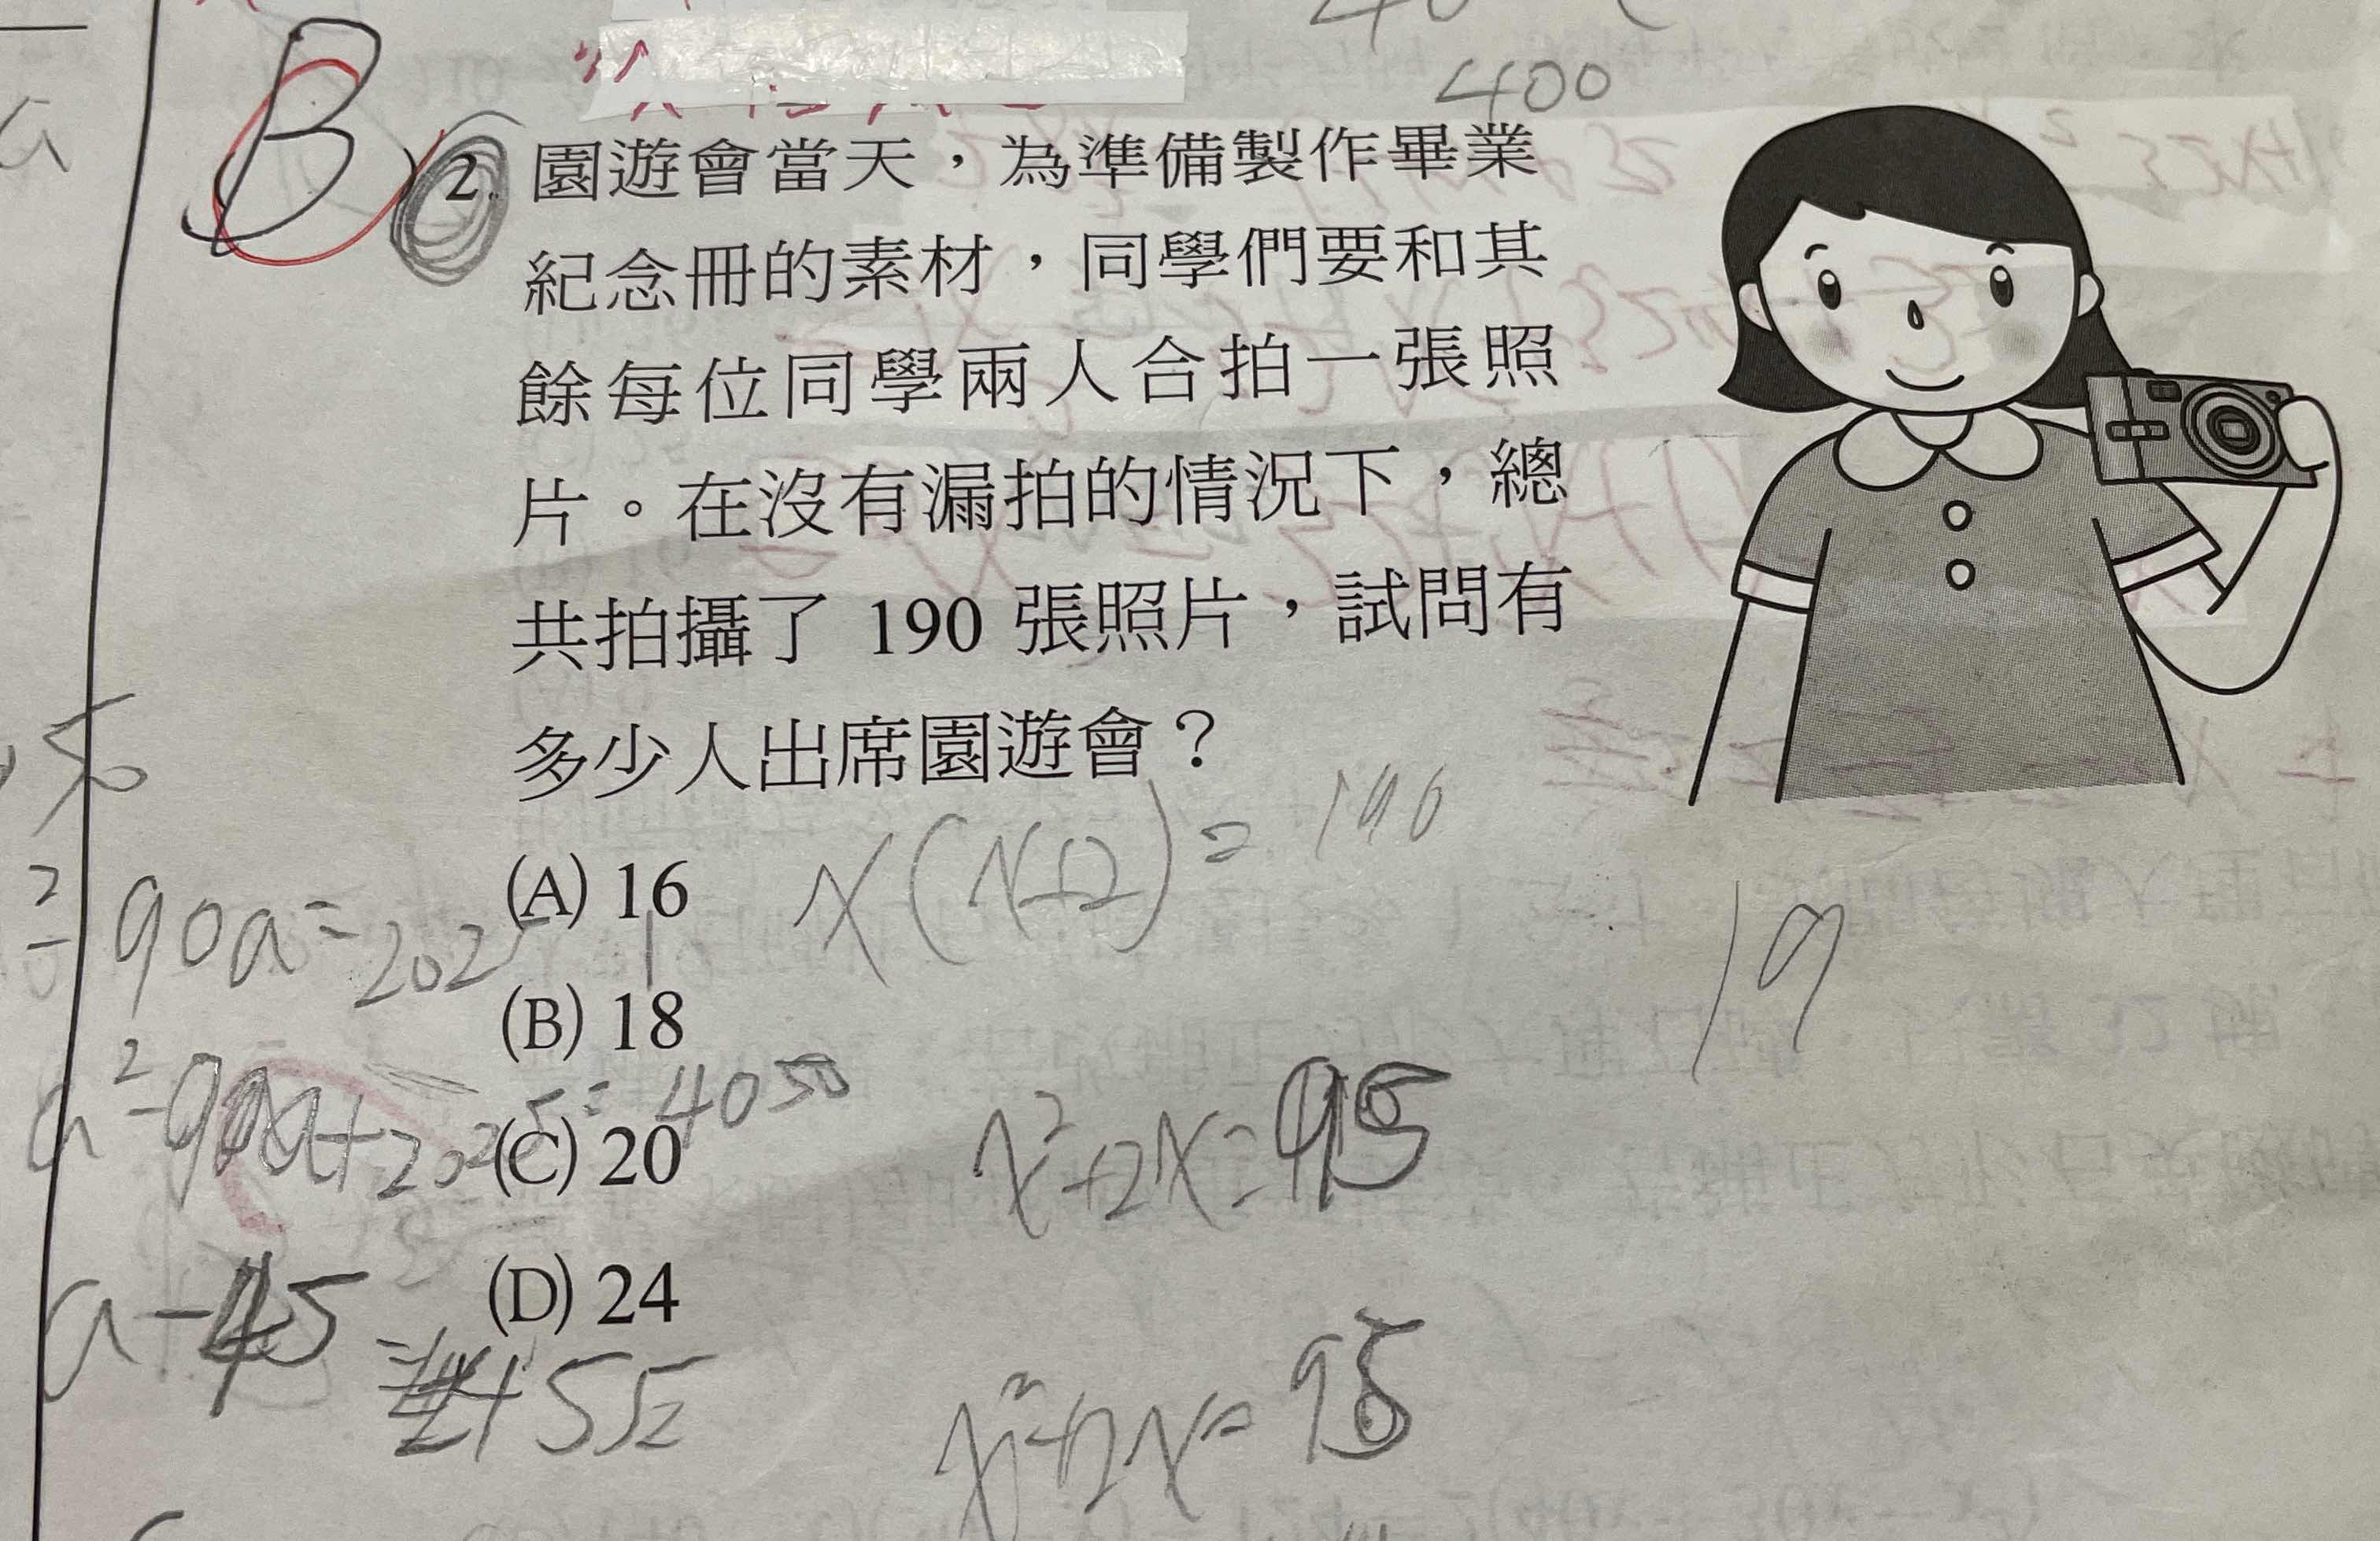 400
B
2. 園遊會當天，為準備製作畢業
紀念冊的素材，同學們要和其
餘每位同學兩人合拍一張照
片。在沒有漏拍的情況下，總
共拍攝了 190 張照片，試問有
多少人出席園遊會？
(A) 16
x(x+2)=190
19
(B) 18
(C) 20
(D) 24
90a=2025
a²-90a+2025=4050
a-45
x²+2x=95
x²+2x=95